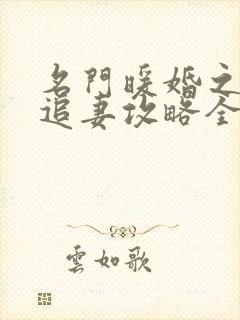 名門暖婚之
追妻攻略全
雲如歌